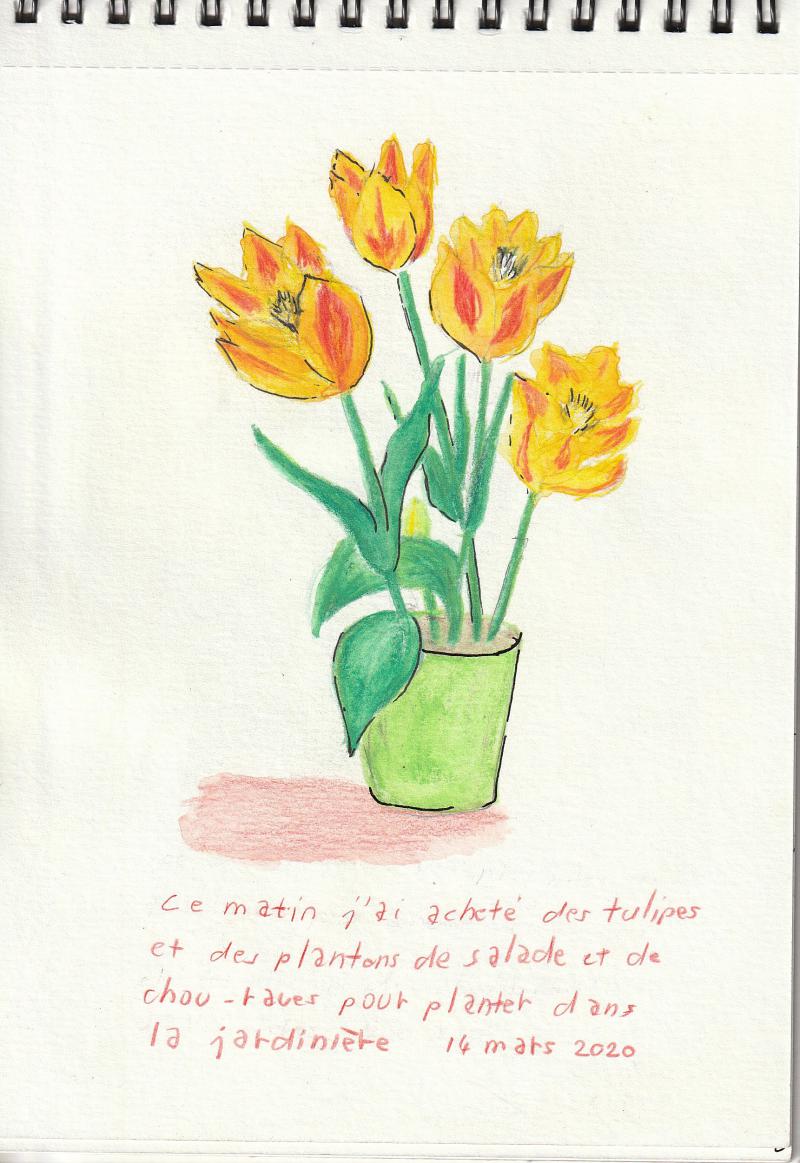 Ce matin j'ai acheté des tulipes
et des plantons de salade et de
chou-raves pour planter dans
la jardinière 14 mars 2020